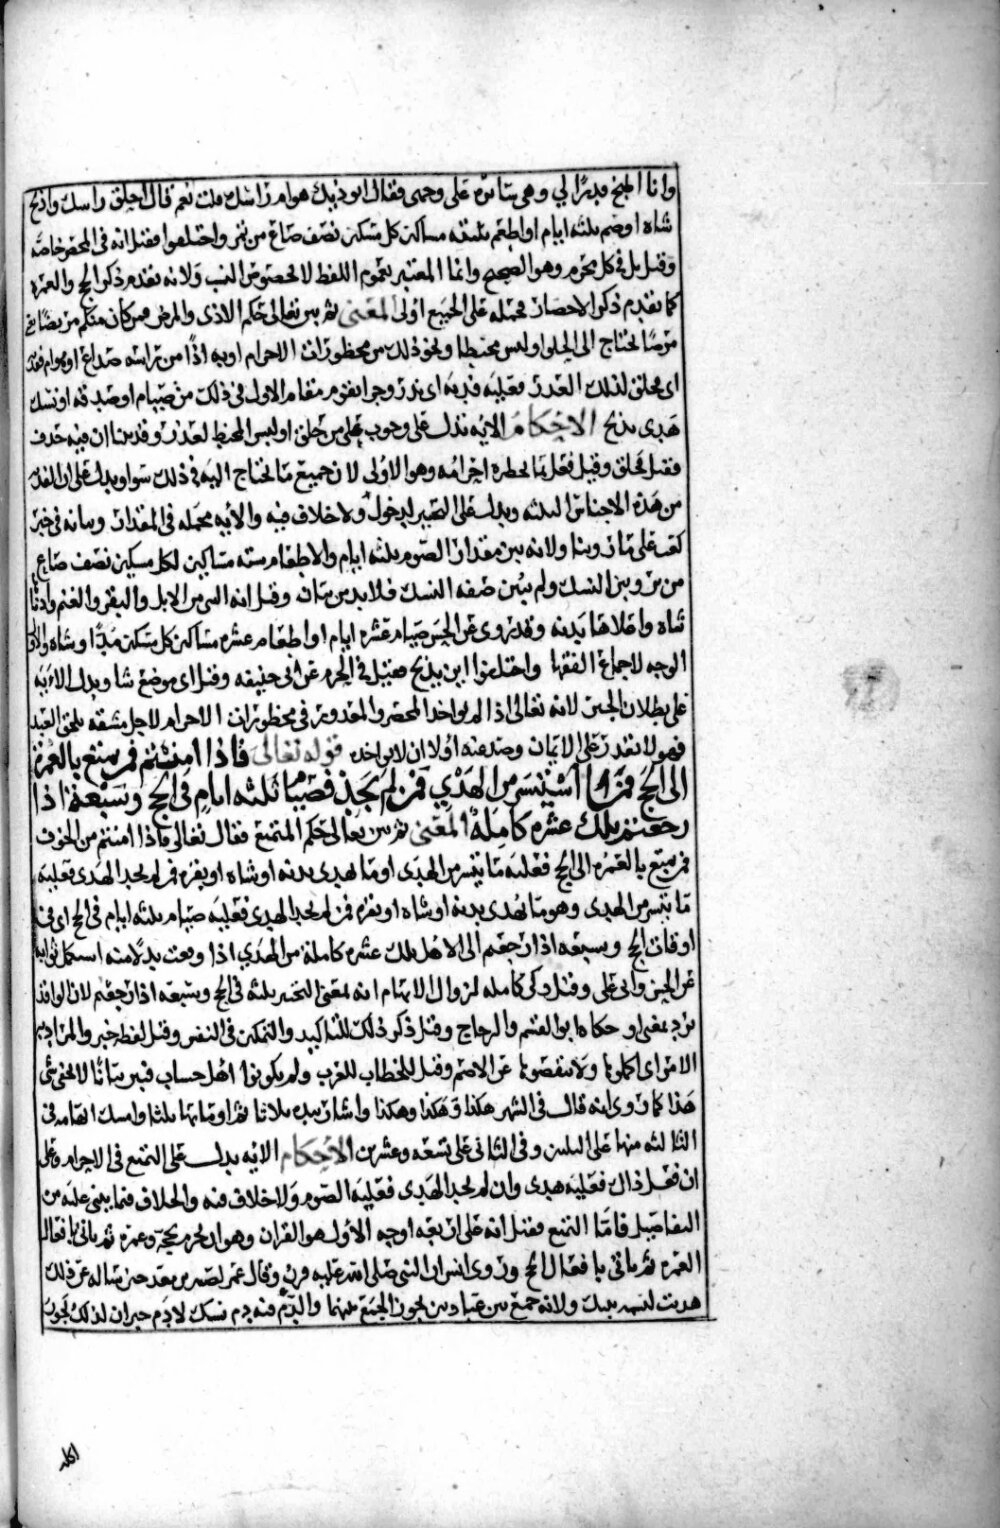 وانا اطبخ قدرا لي وهي تتناثر على وجهي فقال ايوذيك هوام راسك قلت نعم قال احلق راسك واذبح
شاه او صم ثلثه ايام او اطعم ستة مساكين كل مسكين نصف صاع من بر واختلفوا فقيل انه في المحصر خاصه
وقيل بل في كل محرم وهو الصحيح وانما المعتبر بعموم اللفظ لا لخصوص السبب ولانه تقدم ذكر الحج والعمره
كما تقدم ذكر الاحصار فحمله على الجميع اولى المعنى ثم بين تعالى حكم الاذى والمرض فمن كان منكم مريضا
مرضا يحتاج الى الحلق او لبس مخيط او نحو ذلك من محظورات الاحرام او به اذًا من راسه صداع او هوام
اى فحلق لذلك العذر فعليه فديه اى بدل وجزا يقوم مقام الاول في ذلك من صيام او صدقه او نسك
هدى يذبح الاحكام الايه تدل على وجوب على من حلق او لبس المخيط لعذر وقد بينا ان فيه حذف
فقيل فحلق وقيل فعل ما حظره احرامه وهو الاولى لان جميع ما يحتاج اليه في ذلك سوا ويدل على ان الفديه
من هذه الاجناس الثلثه ويدل على التخيير لدخول او ولا خلاف فيه والايه مجمله في المقدار وبيانه في خبر
كعب على ما روينا ولانه بين مقدار الصوم ثلثه ايام والاطعام سته مساكين لكل مسكين نصف صاع
من بر وبين النسك ولم يبين صفه النسك فلا بد من بيان وقيل انه من الابل والبقر والغنم وادناها
شاه واعلاها بدنه وقد روى عن الحسن صيام عشره ايام او اطعام عشره مساكين كل مسكين مدا او شاه والاول
الوجه لاجماع الفقها واختلفوا اين يذبح فقيل في الحرم عن ابي حنيفه وقيل اى موضع شا ويدل الايه
على بطلان الجبر لانه تعالى اذا لم يواخذ المحصر والمعذور في محظورات الاحرام لاجل مشقه تلحق العبد
فهو لا يقدر على الايمان وصد عنه اولا ان لا يواخذه قوله تعالى فاذا امنتم فمن تمتع بالعمرة
الى الحج فما استيسر من الهدي فمن لم يجد فصيام ثلثه ايام في الحج وسبعة اذا
رجعتم تلك عشرة كاملة المعنى ثم بين تعالى حكم المتمتع فقال تعالى فاذا امنتم من الخوف
فمن تمتع بالعمره الى الحج فعليه ما تيسر من الهدى او ما يهدى بدنه او شاه او بقره فمن لم يجد الهدى فعليه
ما تيسر من الهدى وهو ما يهدى بدنه او شاه او بقره فمن لم يجد الهدى فعليه صيام ثلثه ايام في الحج اى في
اوقات الحج وسبعه اذا رجعتم الى الاهل تلك عشره كامله من الهدي اذا وقعت بدلا منه استكمل ثوابه
عن الحسن وابى على وقيل ذكر كامله لزوال الابهام انه بمعنى التخيير ثلثه في الحج وسبعه اذا رجعتم لان الواو قد
ترد بمعنى او حكاه ابو القسم والزجاج وقيل ذكر ذلك للتاكيد والتمكين في النفس وقيل لفظه خبر والمراد به
الامر اى اكملوها ولا تنقصوها عن الاصم وقيل الخطاب للعرب ولم يكونوا اهل حساب فبين بيانا لا يخفى على
هذا كما روى انه قال في الشهر هكذا وهكذا وهكذا واشار بيده ثلاثا ثم اومابها ثلثا وامسك ابهامه في
الثالثه منها على الثلثين وفي الثانى على تسعه وعشرين الاحكام الايه يدل على التمتع في الاحرام وعلى
ان فعل ذلك فعليه هدى وان لم يجد الهدى فعليه الصوم ولا خلاف فيه والخلاف فيما يبنى عليه من
التفاصيل فاما التمتع فقيل انه على اربعه اوجه الاول هو القران وهو ان يحرم بحجه وعمره ثم ياتى بافعال
العمره ثم ياتى بافعال الحج وروى انس ان النبي صلى الله عليه قرن وقال عمر لصبي بن معبد حين ساله عن ذلك
هديت لسنه نبيك ولانه جمع بين عبادتين يجوز الجمع بينهما والدم فيه دم نسك لا دم جبران لذلك يجوز
اكله